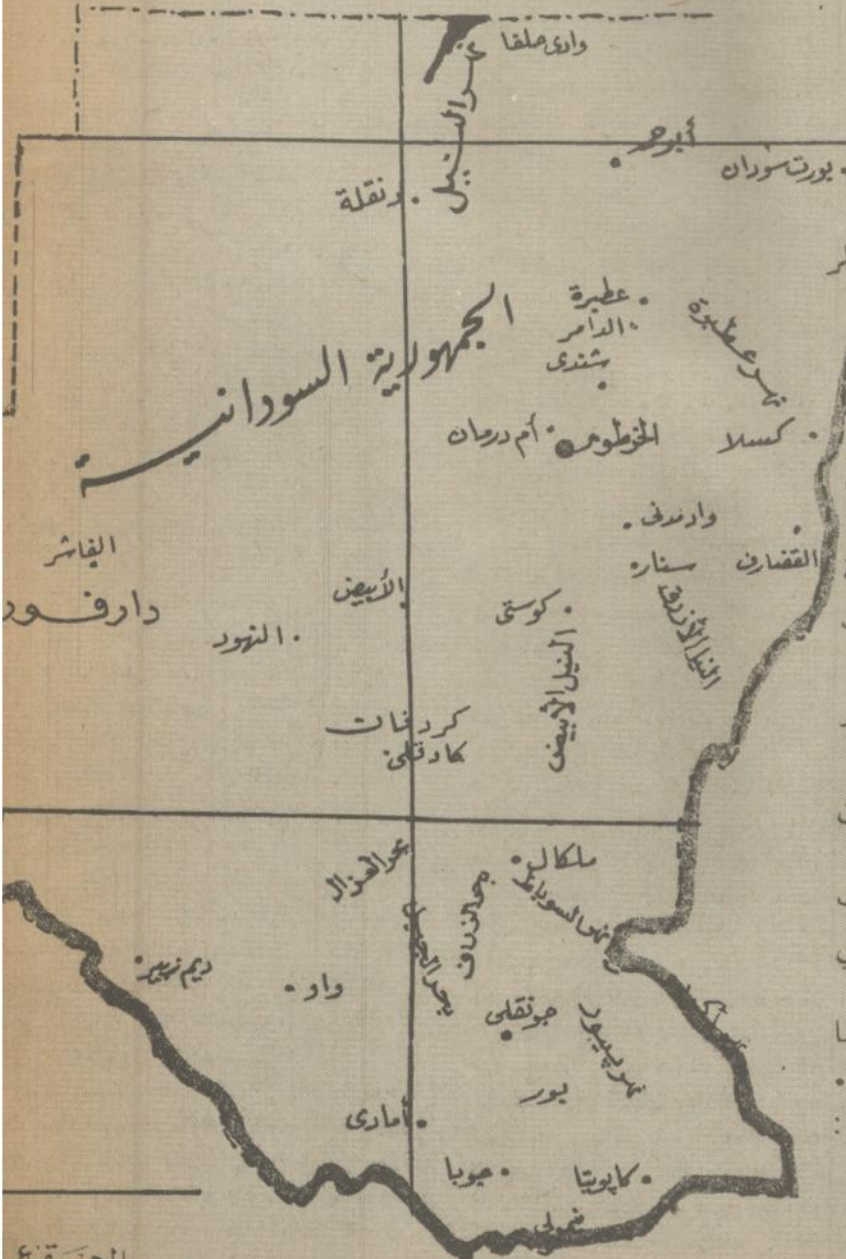 وادى حلفا
نهر النيل
أبو حمد
بورت سودان
دنقلة
عطبرة
الدامر
شندى
نهر عطبرة
الجمهورية السودانية
أم درمان
الخرطوم
كسلا
واد مدنى
سنار
القضارف
الفاشر
دارفور
الأبيض
النهود
كوستى
النيل الأبيض
النيل الأزرق
كردفان
كادقلى
ملكال
بحر الغزال
بحر الزراف
نهر السوباط
بحر الجبل
ديم زبير
واو
جونقلى
نهر بيبور
بور
أمادى
جوبا
كابويتا
نمولى